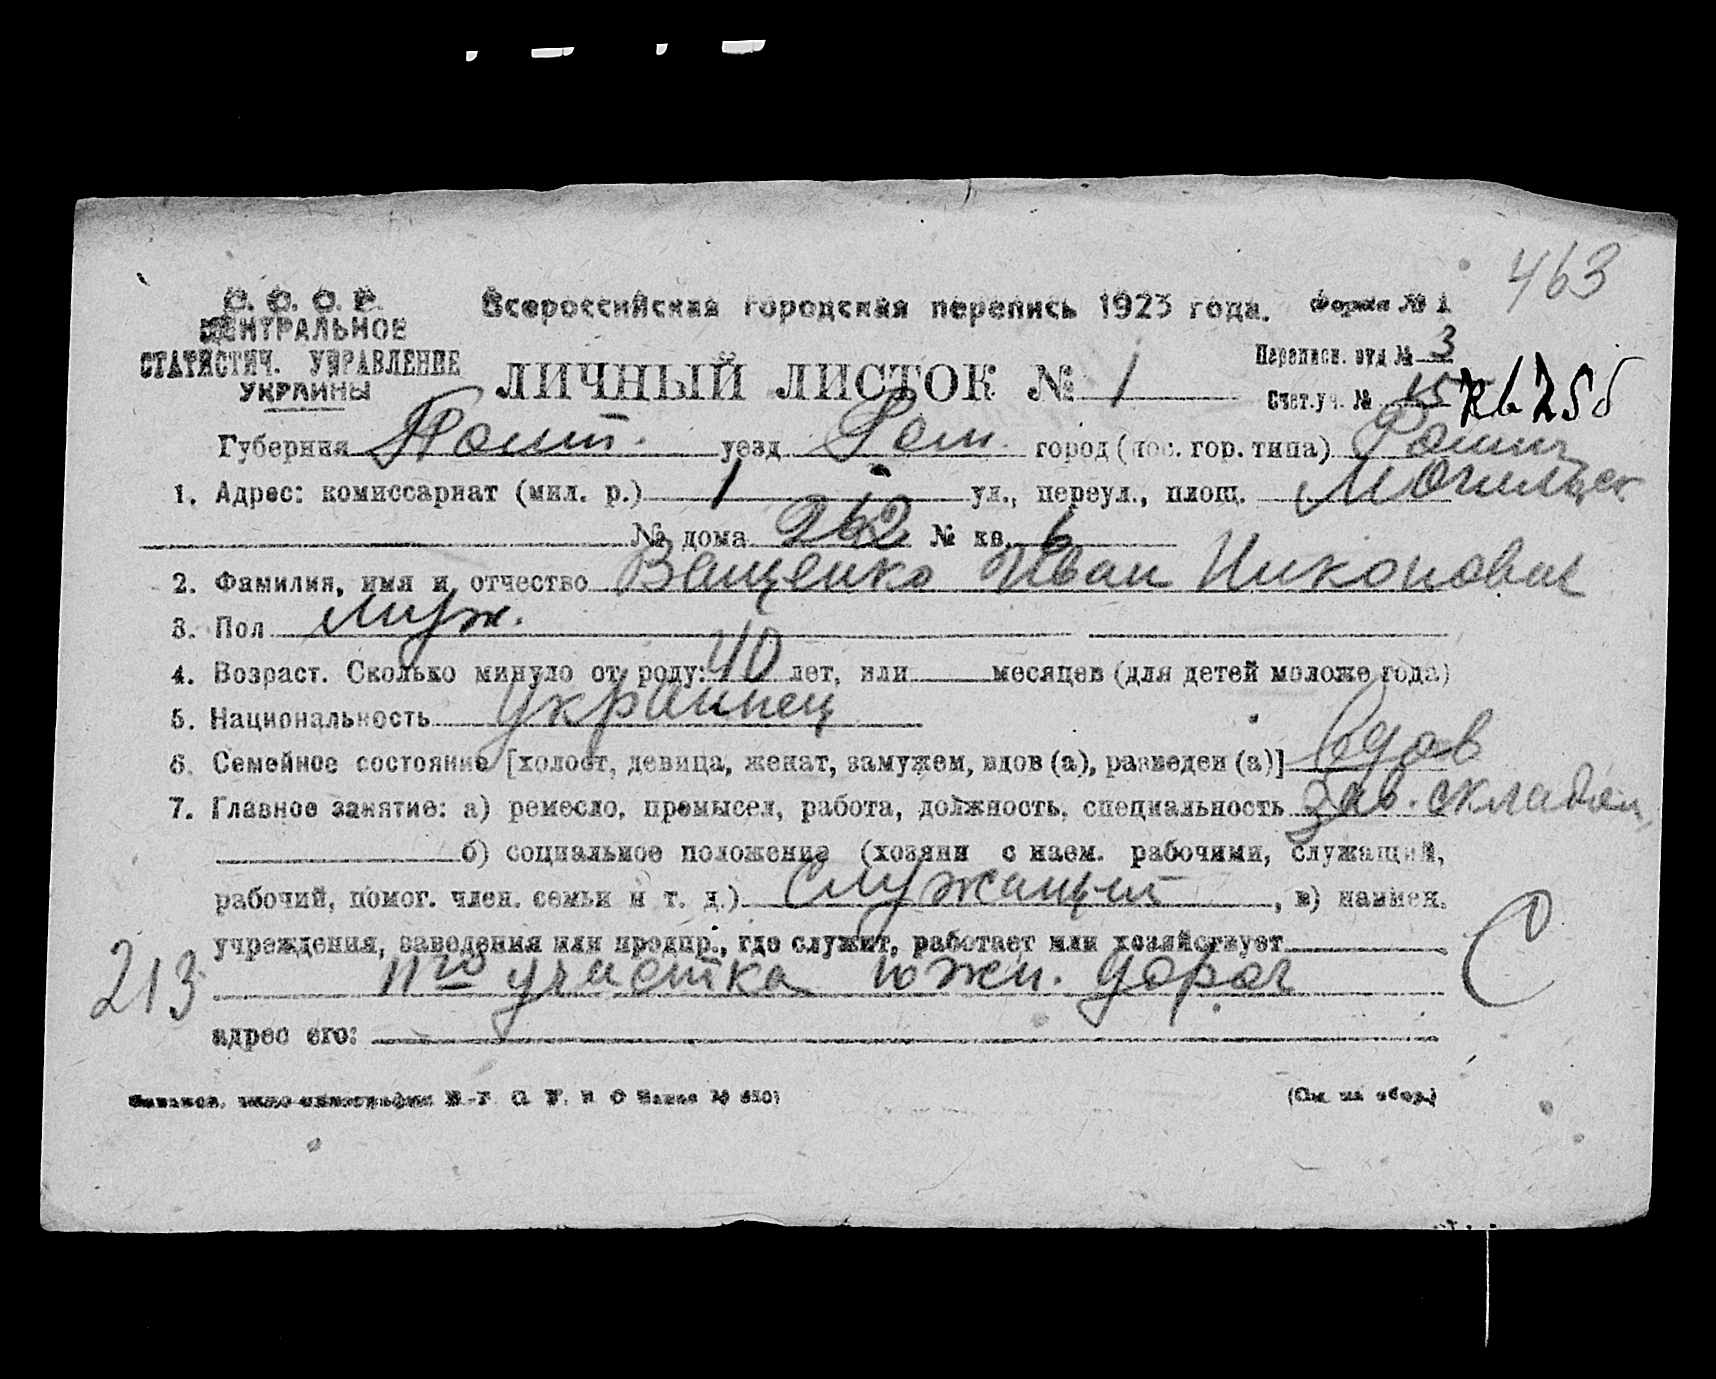 463
С. С. С. Р.
ЦЕНТРАЛЬНОЕ
СТАТИСТИЧ. УПРАВЛЕНИЕ
УКРАИНЫ
Всероссийская городская перепись 1923 года. Форма № 1
ЛИЧНЫЙ ЛИСТОК № 1
Переписн. отд № 3
Счет. уч. № 15
Губерния Полт. уезд Ром. город (пос. гор. типа) Ромны
1. Адрес: комиссариат (мил. р.) 1 ул., переул., площ.
№ дома 262 № кв. 6
2. Фамилия, имя и отчество Ващенко Иван Никонович
3. Пол муж.
4. Возраст. Сколько минуло от роду: 40 лет, или месяцев (для детей моложе года)
5. Национальность украинец
6. Семейное состояние [холост, девица, женат, замужем, вдов (а), разведен (а)] вдов
7. Главное занятие: а) ремесло, промысел, работа, должность, специальность Зав. складом
б) социальное положение (хозяин с наем. рабочими, служащий,
рабочий, помог. член. семьи и т. д.) служащий, в) наимен.
учреждения, заведения или предпр., где служит, работает или хозяйствует
11го участка южн. дорог
213
адрес его:
(См. на обор.)